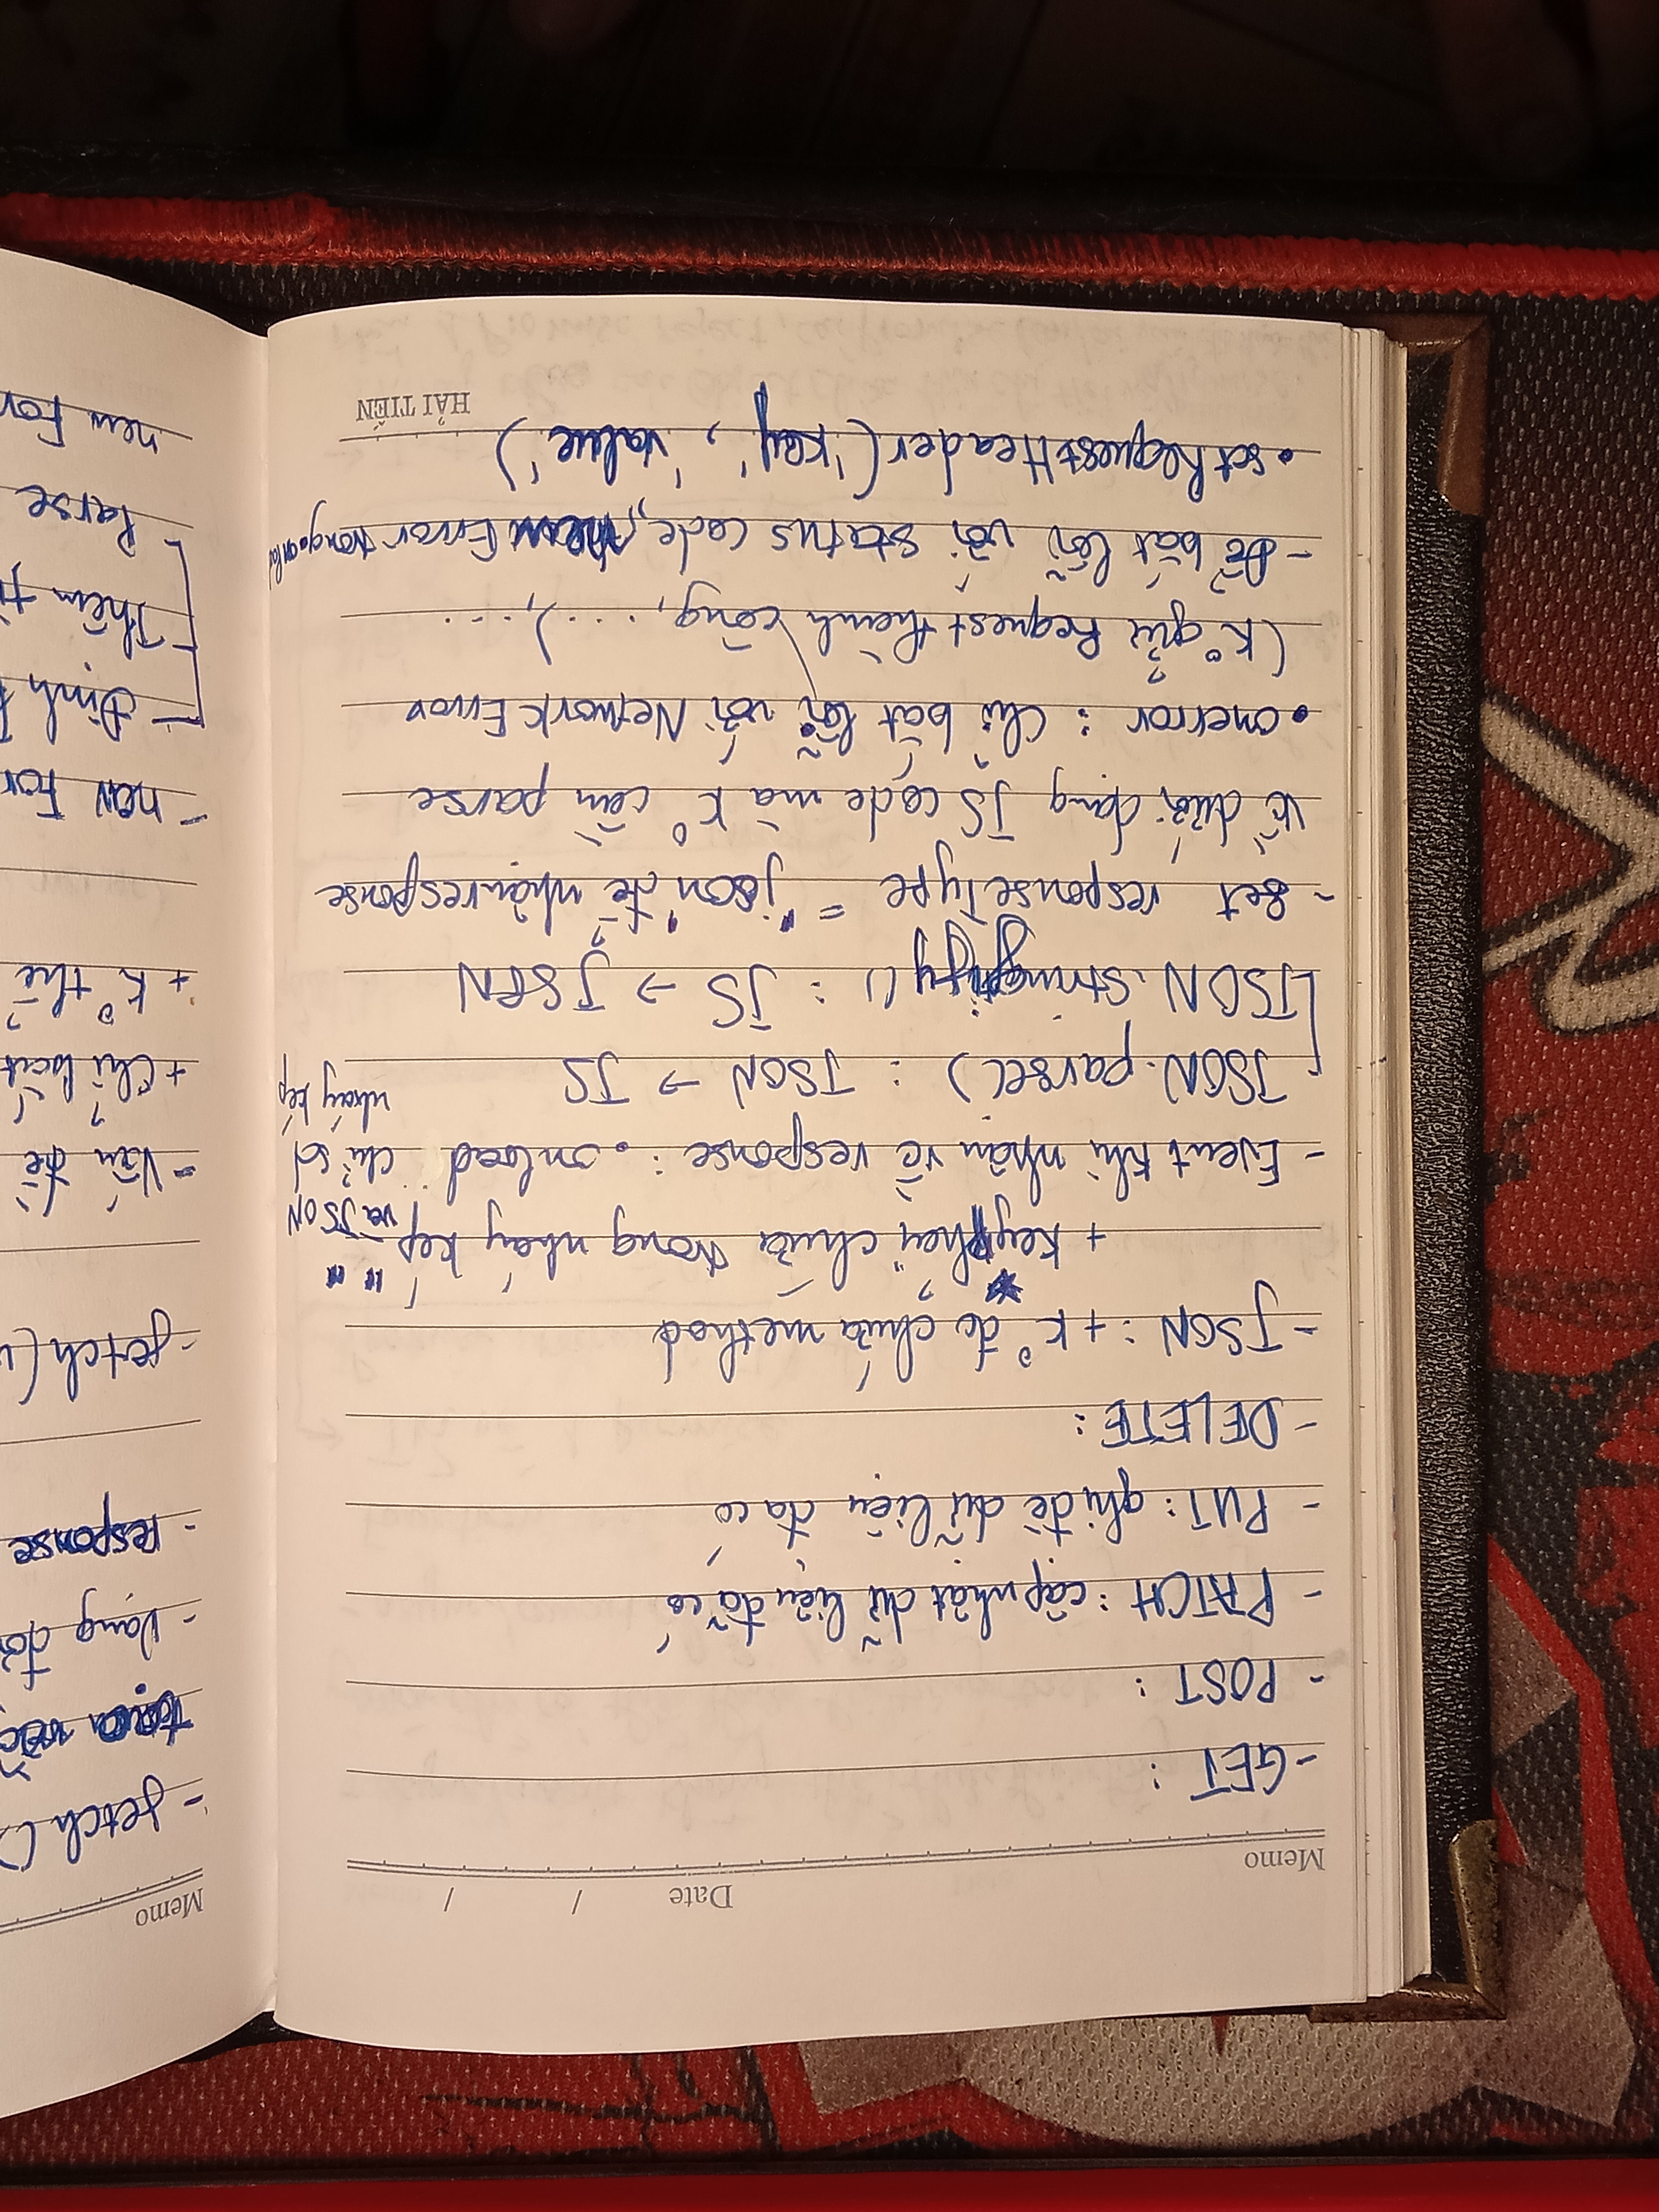 Date / /
Memo
- GET :
- POST :
- PATCH : cập nhật dữ liệu đã có
- PUT : ghi đè dữ liệu đã có
- DELETE :
- JSON : + K° đc chứa method
+ Key phải chứa trong nháy kép " "
và JSON
chỉ sd
nháy kép
- Event khi nhận về response : .onload
JSON.parse() : JSON → JS
JSON.stringtify() : JS → JSON
- set responseType = "json" để nhận response
về dưới dạng JS code mà K° cần parse
.onerror : Chỉ bắt lỗi với Network Error
(K° gửi Request thành công, ...), ...
- Để bắt lỗi với status code, Error trong onload
.setRequestHeader('key', 'value')
HẢI TIẾN
Memo
- fetch()
tạo
- Dạng
- response
- fetch(
- Vấn đề
+ Chỉ bắt
+ K° thể
- new For
Định
Thêm
Parse
new For